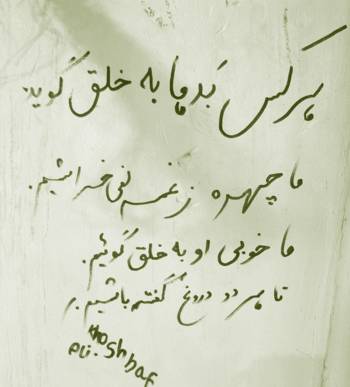 هر کس بد ما به خلق گوید
ما چهره ز غم نمی خراشیم.
ما خوبی او به خلق گوئیم.
تا هر دو دروغ گفته باشیم.
Khoshbaf